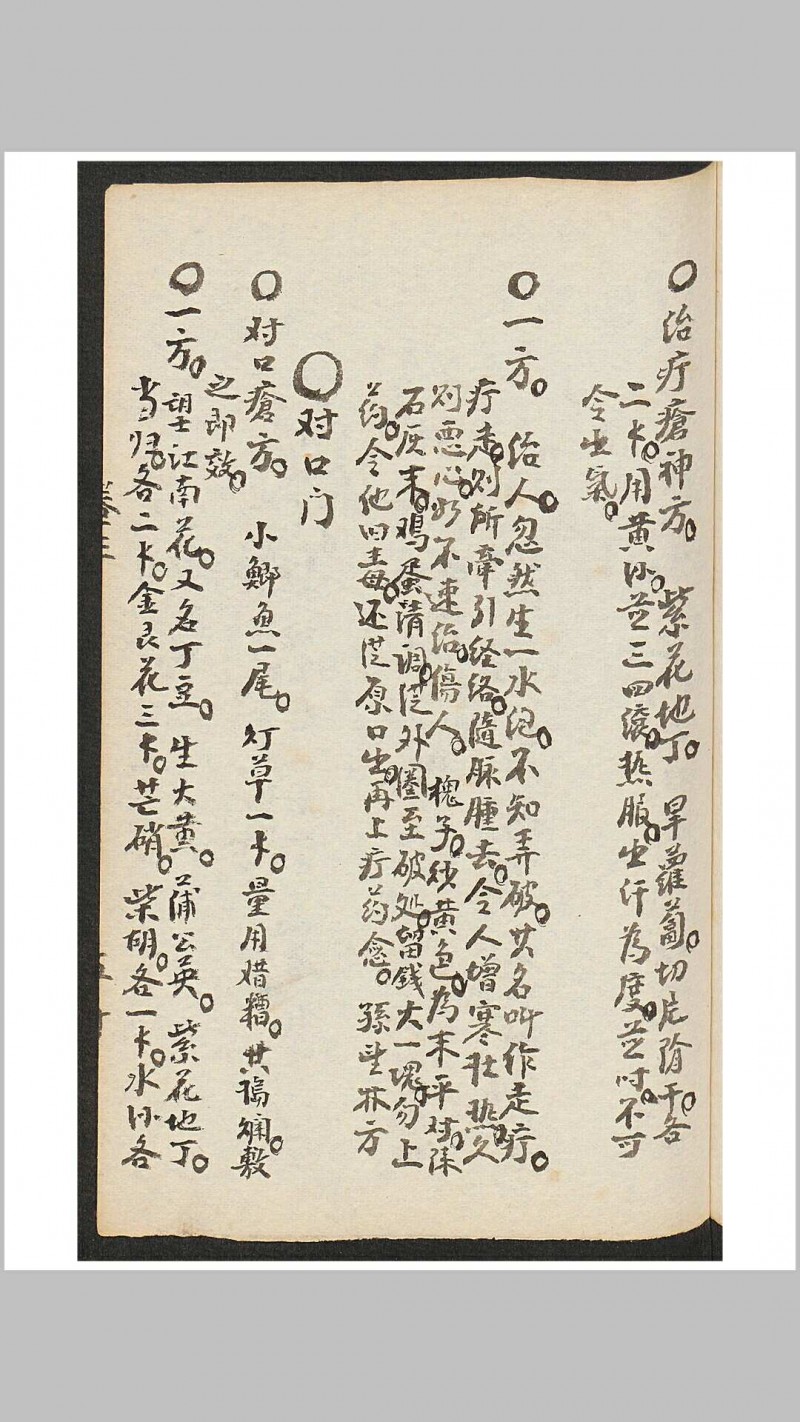 〇治疗瘡神方。 紫花地丁。 旱蘿蔔。切片。陰干。各
二卡。用黄酒。煎三四滚。热服。出汗為度。煎时。不可
令出氣。
〇一方。 治人。忽然生一水泡。不知弄破。其名叫作走疗。
疗走。则所牵引经络。隨脉腫去。令人增寒壮热。久
则恶心。如不速治。傷人。 槐子。炒黄色。為末。平对。陈
石灰末。鸡蛋清调。從外圈至破处。留钱大一塊。勿上
药。令他回毒。还從原口出。再上疗药愈。 孫中林方
〇对口门
〇对口瘡方。 小鯽魚一尾。 灯草一卡。量用醋糟。共搗爛。敷
之即效。
〇一方。望江南花。又名丁豆。 生大黄。 蒲公英。 紫花地丁。
当归。各二卡。金艮花三卡。芒硝。 柴胡。各一卡。水酒各
卷三